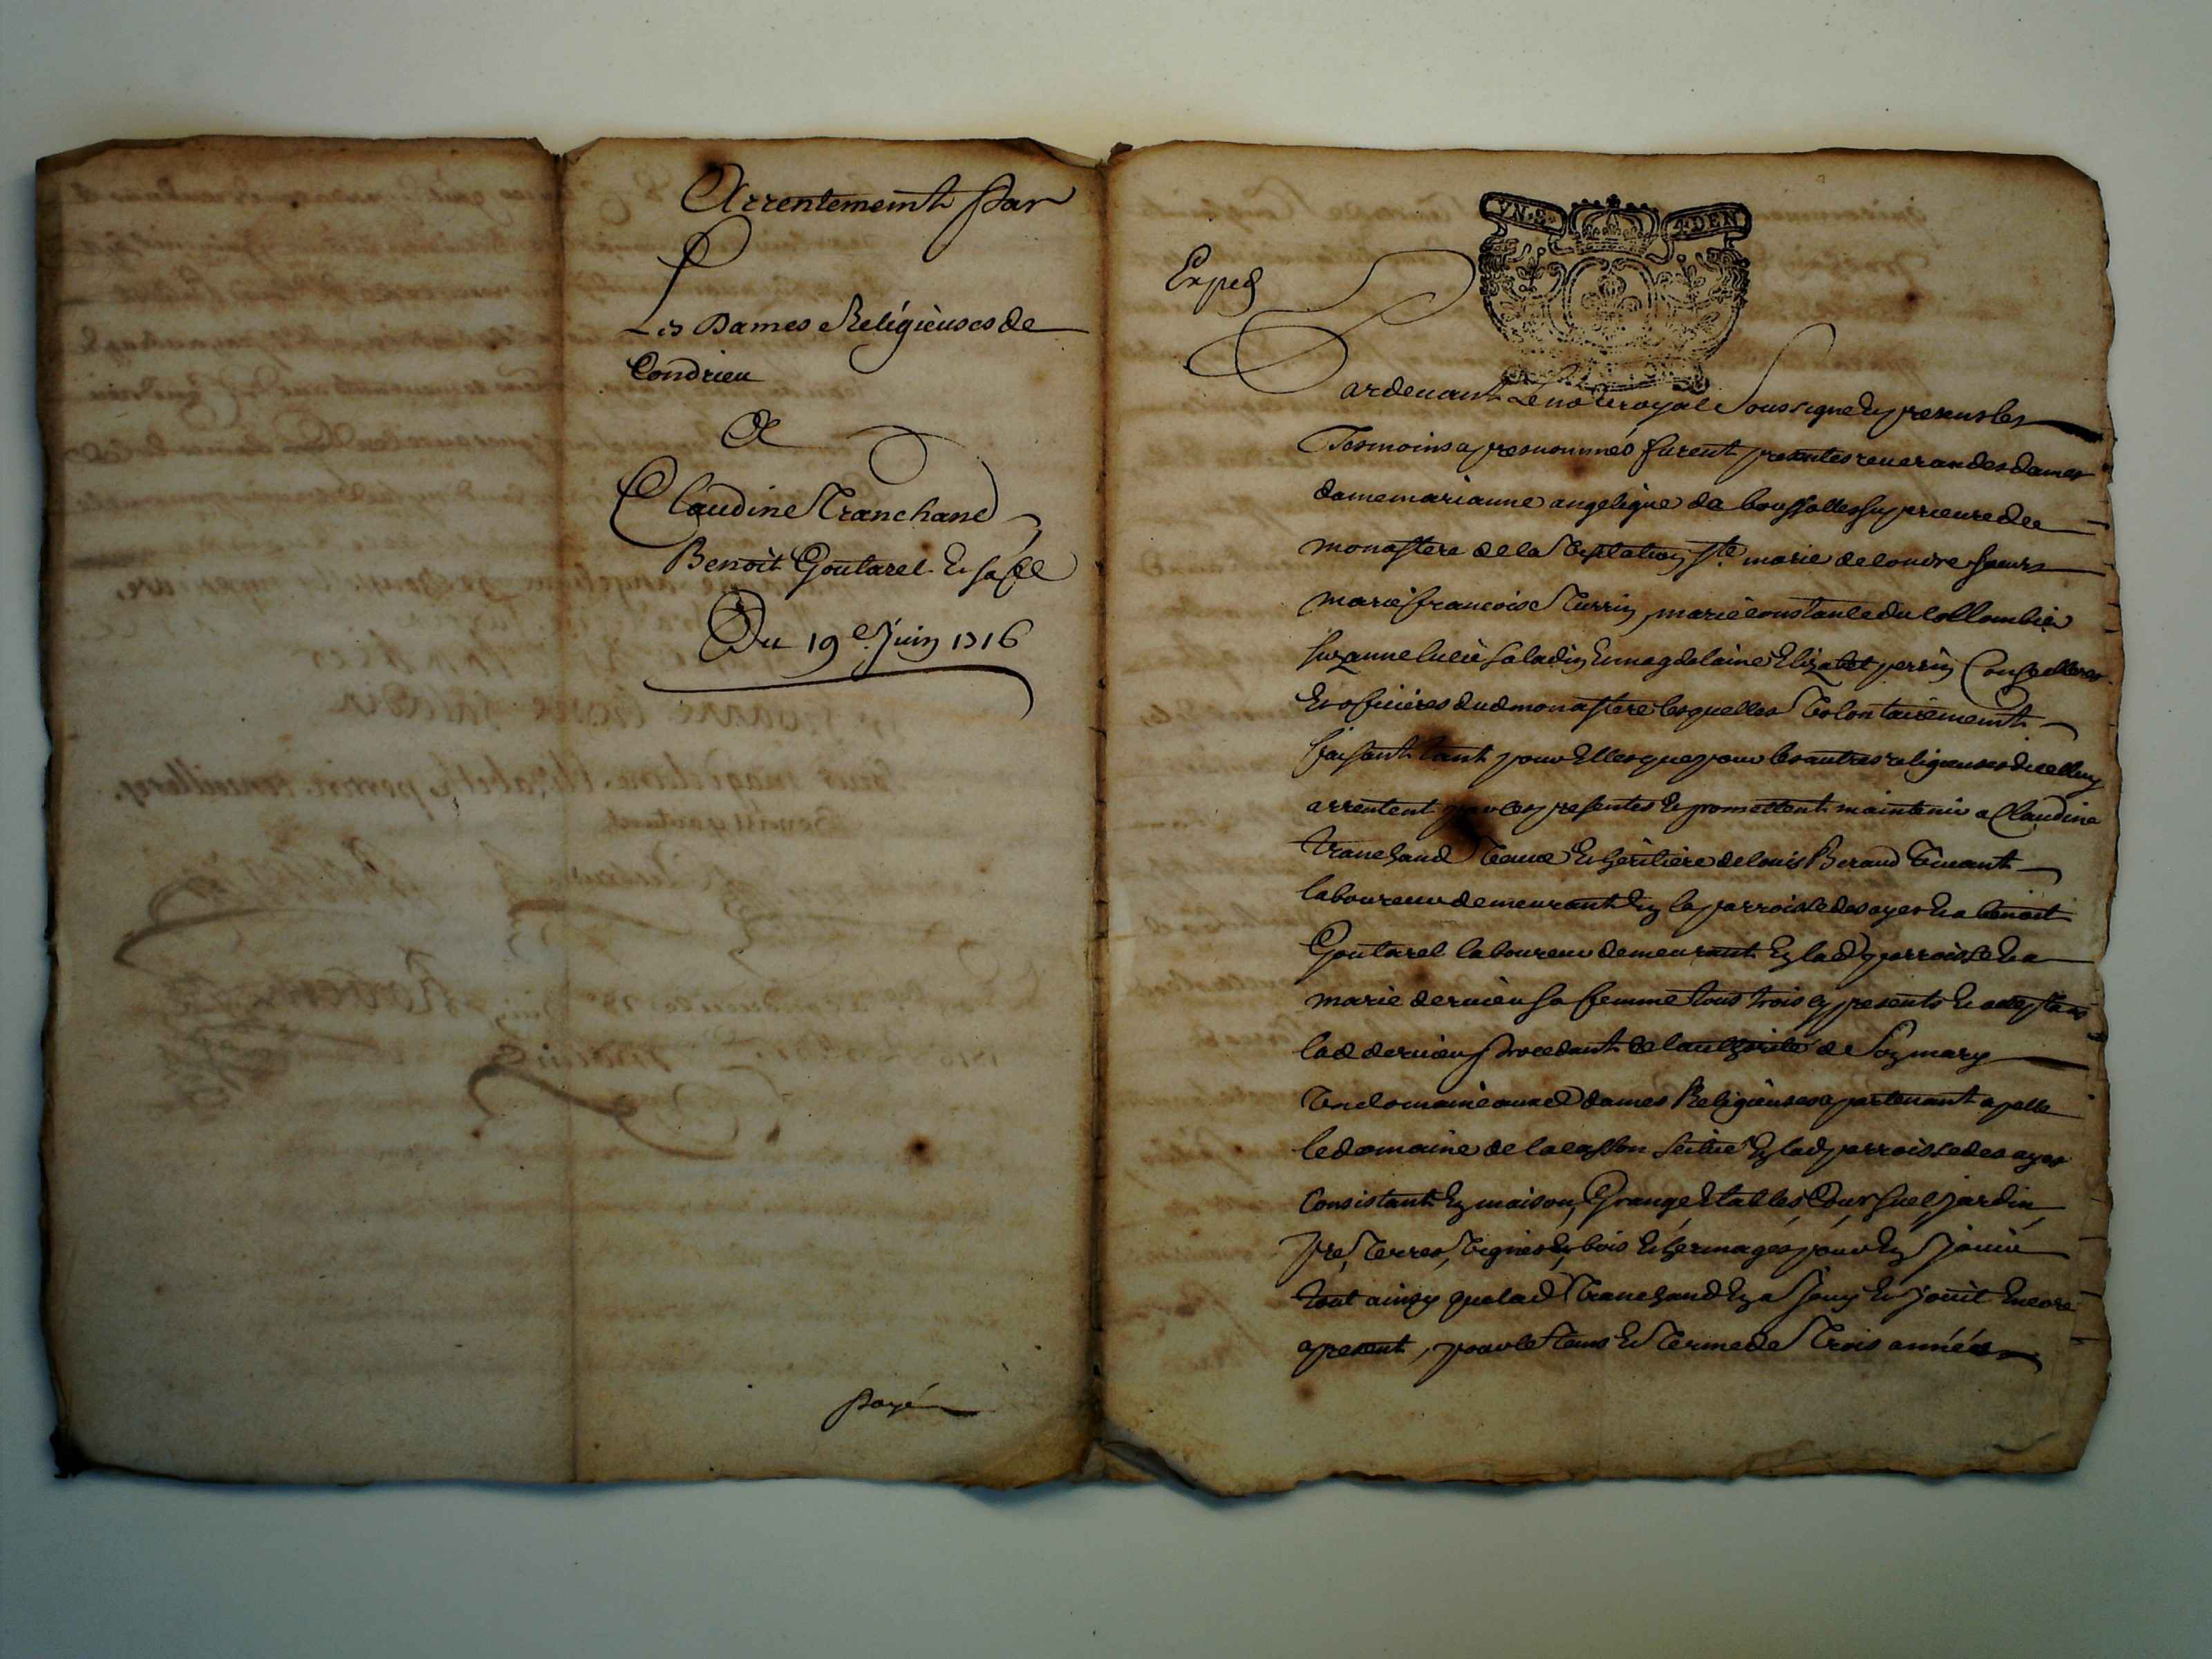 Arrentement Par
Les Dames Religieuses de
Condrieu
A
Claudine Tranchand
Benoit Goutarel Et sa fe
Du 19e Juin 1716
payé
VN.S. 4.DEN
Exped
Pardevant Le no.re royal Soussigné Et presens les
Tesmoins apresnommés furent presentes reverandes dames
dame marianne angelique da boussolles superieure du
monastere de la Visitation Ste. marie de
marie francoise Turrin, marie constance du Collombie
suzanne lucie saladin Et magdelaine Elizabet perrin Conseilleres
Et oficieres dud monastere lesquelles Volontairement
faisant tant pour Elles que pour les autres religieuses dicelluy
arrentent par ces presentes Et promettent maintenir a Claudine
tranchand Veuve Et heritiere de louis Beraud Vivant
laboureur demeurant En la parroisse des ayes Et a benoit
Goutarel laboureur demeurant En lad parroisse Et a
marie dervieu sa femme tous trois cy presents Et acceptans
lad dervieu procedant de lauthorité de Son mary
Un domaine ausd dames Religieuses apartenant apellé
le domaine de scitué En lad parroisse des ayes
Consistant En maison, Grange Etables, Cour suel, jardin,
pré, Terres, Vignes, bois Et hermages pour En jouir
tout ainsy que lad Tranchand En a jouy Et jouit Encore
apresent, pour le Tems Et Terme de Trois années